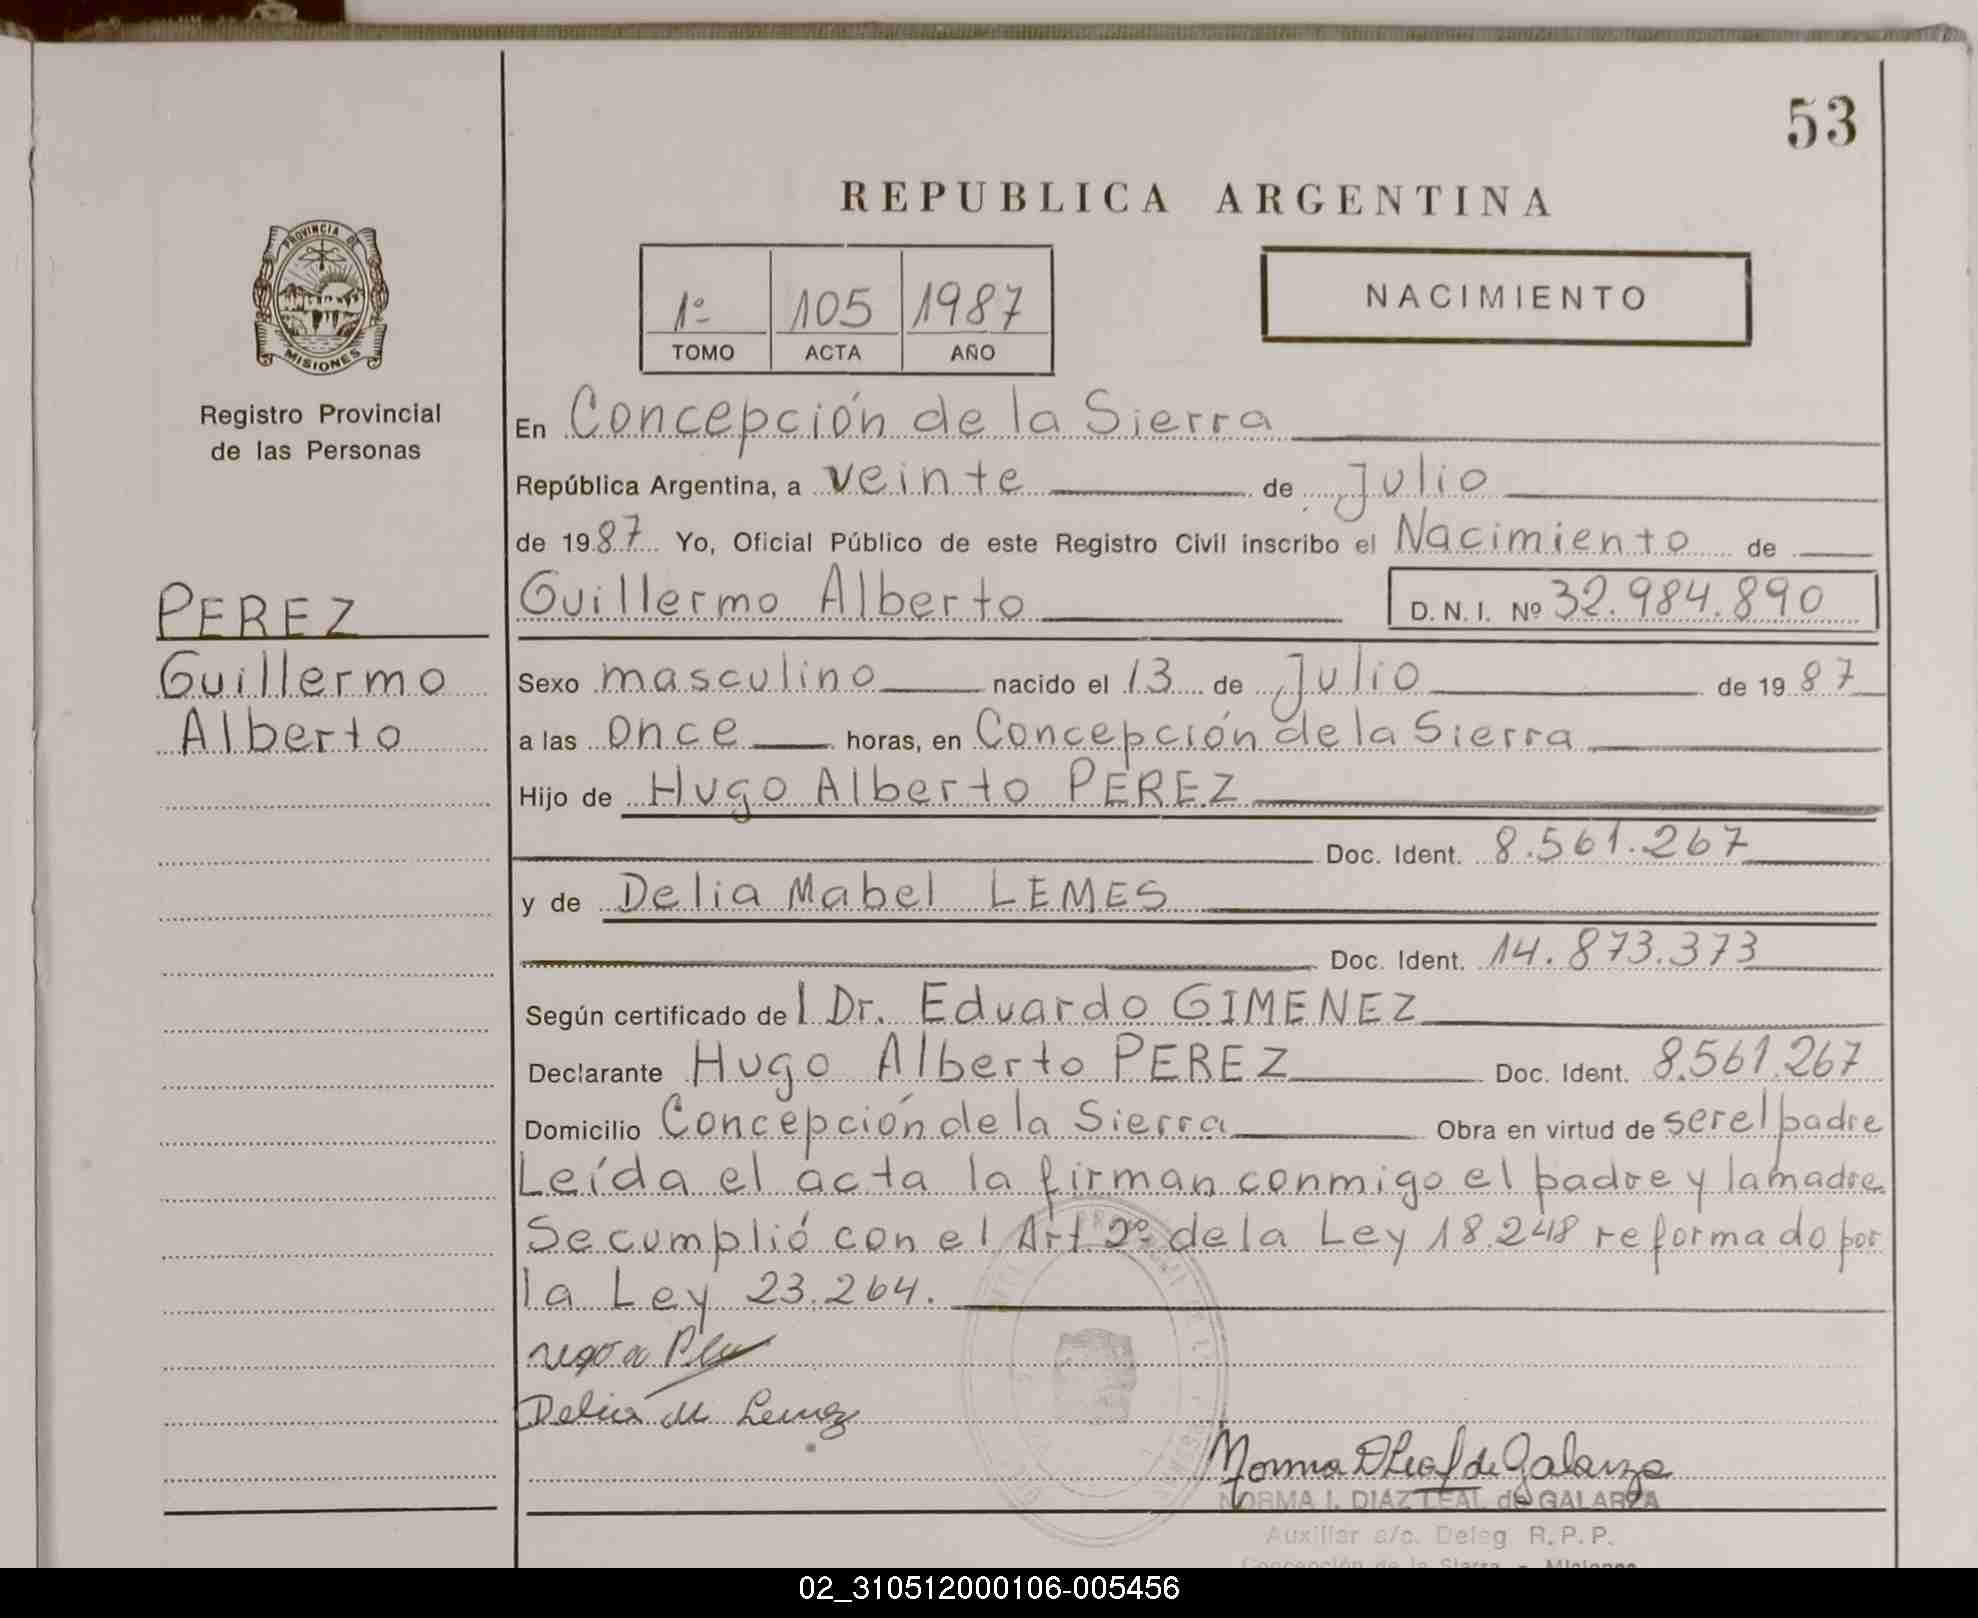 53
REPUBLICA ARGENTINA
PROVINCIA DE
MISIONES
1º 105 1987
TOMO ACTA AÑO
NACIMIENTO
Registro Provincial
de las Personas
En Concepción de la Sierra
República Argentina, a veinte de Julio
de 1987 Yo, Oficial Público de este Registro Civil inscribo el Nacimiento de
Guillermo Alberto D. N. I. Nº 32.984.890
PEREZ
Guillermo
Alberto
Sexo masculino nacido el 13 de Julio de 1987
a las once horas, en Concepción de la Sierra
Hijo de Hugo Alberto PEREZ
Doc. Ident. 8.561.267
y de Delia Mabel LEMES
Doc. Ident. 14.873.373
Según certificado del Dr. Eduardo GIMENEZ
Declarante Hugo Alberto PEREZ Doc. Ident. 8.561.267
Domicilio Concepción de la Sierra Obra en virtud de ser el padre
Leída el acta la firman conmigo el padre y la madre
Se cumplió con el Art 2º de la Ley 18.248 reformado por
la Ley 23.264.
Delia M Lemez
Norma D Leal de Galarza
NORMA I. DIAZ LEAL de GALARZA
Auxiliar a/c. Deleg R. P. P.
Concepción de la Sierra - Misiones
02_310512000106-005456